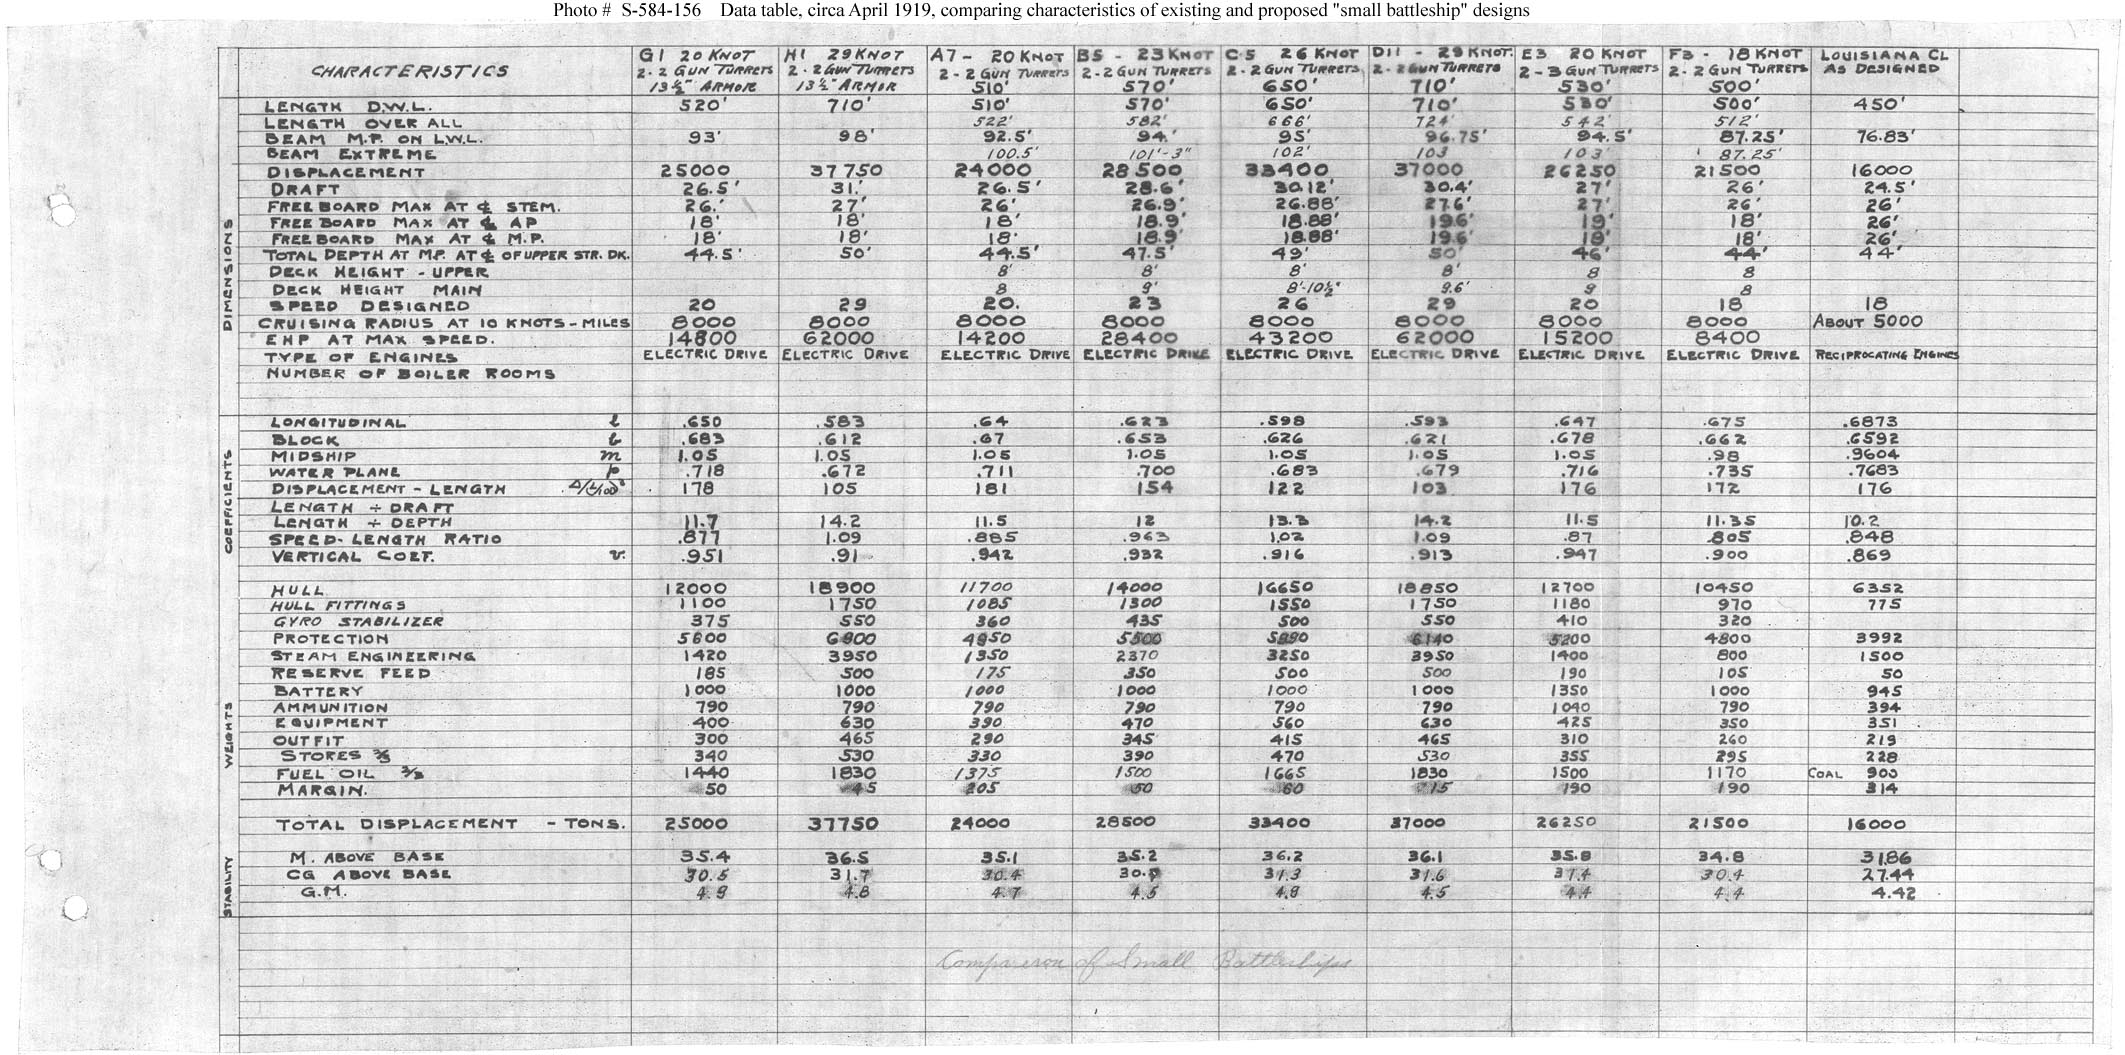 Photo # S-584-156 Data table, circa April 1919, comparing characteristics of existing and proposed "small battleship" designs
CHARACTERISTICS G1 20 KNOT 2-2 GUN TURRETS 13½" ARMOR H1 29 KNOT 2-2 GUN TURRETS 13½" ARMOR A7 - 20 KNOT 2-2 GUN TURRETS 510' B5 - 23 KNOT 2-2 GUN TURRETS 570' C5 26 KNOT 2-2 GUN TURRETS 650' D11 - 29 KNOT. 2-2 GUN TURRETS 710' E3 20 KNOT 2-3 GUN TURRETS 530' F3 - 18 KNOT 2-2 GUN TURRETS 500' LOUISIANA CL AS DESIGNED
DIMENSIONS
LENGTH D.W.L. 520' 710' 510' 570' 650' 710' 530' 500' 450'
LENGTH OVER ALL 522' 582' 666' 724' 542' 512'
BEAM M.P. ON L.W.L. 93' 98' 92.5' 94.' 95' 96.75' 94.5' 87.25' 76.83'
BEAM EXTREME 100.5' 101'-3" 102' 103 103' 87.25'
DISPLACEMENT 25000 37750 24000 28500 33400 37000 26250 21500 16000
DRAFT 26.5' 31.' 26.5' 28.6' 30.12' 30.4' 27' 26' 24.5'
FREEBOARD MAX AT ℄ STEM. 26.' 27' 26' 26.9' 26.88' 27.6' 27' 26' 26'
FREEBOARD MAX AT ℄ AP 18' 18' 18' 18.9' 18.88' 19.6' 19' 18' 26'
FREEBOARD MAX AT ℄ M.P. 18' 18' 18' 18.9' 18.88' 19.6' 19' 18' 26'
TOTAL DEPTH AT M.P. AT ℄ OF UPPER STR. DK. 44.5' 50' 44.5' 47.5' 49' 50' 46' 44' 44'
DECK HEIGHT - UPPER 8' 8' 8' 8' 8 8
DECK HEIGHT MAIN 8 9' 8'-10½" 9.6' 9 8
SPEED DESIGNED 20 29 20. 23 26 29 20 18 18
CRUISING RADIUS AT 10 KNOTS - MILES 8000 8000 8000 8000 8000 8000 8000 8000 ABOUT 5000
EHP AT MAX SPEED. 14800 62000 14200 28400 43200 62000 15200 8400
TYPE OF ENGINES ELECTRIC DRIVE ELECTRIC DRIVE ELECTRIC DRIVE ELECTRIC DRIVE ELECTRIC DRIVE ELECTRIC DRIVE ELECTRIC DRIVE ELECTRIC DRIVE RECIPROCATING ENGINES
NUMBER OF BOILER ROOMS
COEFFICIENTS
LONGITUDINAL l .650 .583 .64 .623 .598 .593 .647 .675 .6873
BLOCK b .683 .612 .67 .653 .626 .621 .678 .662 .6592
MIDSHIP m 1.05 1.05 1.05 1.05 1.05 1.05 1.05 .98 .9604
WATER PLANE p .718 .672 .711 .700 .683 .679 .716 .735 .7683
DISPLACEMENT - LENGTH Δ/(L/100)³ 178 105 181 154 122 103 176 172 176
LENGTH ÷ DRAFT
LENGTH ÷ DEPTH 11.7 14.2 11.5 12 13.3 14.2 11.5 11.35 10.2
SPEED-LENGTH RATIO .877 1.09 .885 .963 1.02 1.09 .87 .805 .848
VERTICAL COEF. v. .951 .91 .942 .932 .916 .913 .947 .900 .869
WEIGHTS
HULL 12000 18900 11700 14000 16650 18850 12700 10450 6352
HULL FITTINGS 1100 1750 1085 1300 1550 1750 1180 970 775
GYRO STABILIZER 375 550 360 435 500 550 410 320
PROTECTION 5600 6800 4950 5500 6140 5200 4800 3992
STEAM ENGINEERING 1420 3950 1350 2370 3250 3950 1400 800 1500
RESERVE FEED 185 500 175 350 500 500 190 105 50
BATTERY 1000 1000 1000 1000 1000 1000 1350 1000 945
AMMUNITION 790 790 790 790 790 790 1040 790 394
EQUIPMENT 400 630 390 470 560 630 425 350 351
OUTFIT 300 465 290 345 415 465 310 260 219
STORES ⅔ 340 530 330 390 470 530 355 295 228
FUEL OIL ⅔ 1440 1830 1375 1500 1665 1830 1500 1170 COAL 900
MARGIN. 50 45 205 50 60 15 190 190 314
TOTAL DISPLACEMENT - TONS. 25000 37750 24000 28500 33400 37000 26250 21500 16000
STABILITY
M. ABOVE BASE 35.4 36.5 35.1 35.2 36.2 36.1 35.8 34.8 31.86
CG ABOVE BASE 30.5 31.7 30.4 30.7 31.3 31.6 31.4 30.4 27.44
G.M. 4.9 4.8 4.7 4.5 4.9 4.5 4.4 4.4 4.42
Comparison of Small Battleships